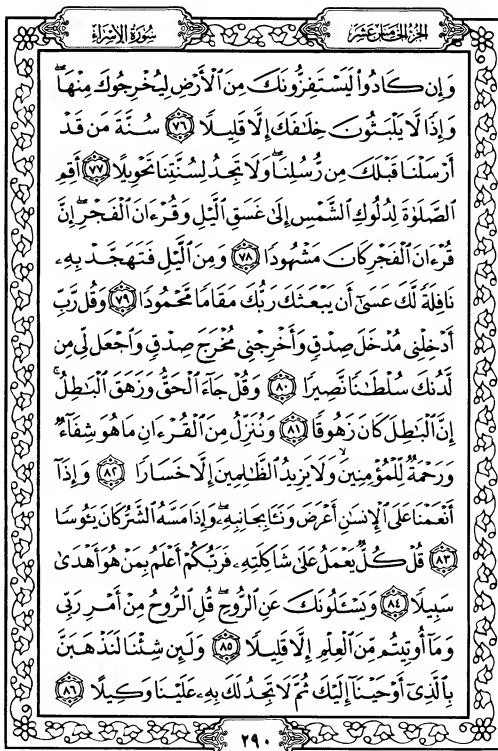 سُورَةُ الإِسۡرَاءِ
الجُزۡءُ الخَامِسَ عَشَرَ
وَإِن كَادُواْ لَيَسۡتَفِزُّونَكَ مِنَ ٱلۡأَرۡضِ لِيُخۡرِجُوكَ مِنۡهَاۖ
وَإِذٗا لَّا يَلۡبَثُونَ خِلَٰفَكَ إِلَّا قَلِيلٗا ٧٦ سُنَّةَ مَن قَدۡ
أَرۡسَلۡنَا قَبۡلَكَ مِن رُّسُلِنَاۖ وَلَا تَجِدُ لِسُنَّتِنَا تَحۡوِيلًا ٧٧ أَقِمِ
ٱلصَّلَوٰةَ لِدُلُوكِ ٱلشَّمۡسِ إِلَىٰ غَسَقِ ٱلَّيۡلِ وَقُرۡءَانَ ٱلۡفَجۡرِۖ إِنَّ
قُرۡءَانَ ٱلۡفَجۡرِ كَانَ مَشۡهُودٗا ٧٨ وَمِنَ ٱلَّيۡلِ فَتَهَجَّدۡ بِهِۦ
نَافِلَةٗ لَّكَ عَسَىٰٓ أَن يَبۡعَثَكَ رَبُّكَ مَقَامٗا مَّحۡمُودٗا ٧٩ وَقُل رَّبِّ
أَدۡخِلۡنِي مُدۡخَلَ صِدۡقٖ وَأَخۡرِجۡنِي مُخۡرَجَ صِدۡقٖ وَٱجۡعَل لِّي مِن
لَّدُنكَ سُلۡطَٰنٗا نَّصِيرٗا ٨٠ وَقُلۡ جَآءَ ٱلۡحَقُّ وَزَهَقَ ٱلۡبَٰطِلُۚ
إِنَّ ٱلۡبَٰطِلَ كَانَ زَهُوقٗا ٨١ وَنُنَزِّلُ مِنَ ٱلۡقُرۡءَانِ مَا هُوَ شِفَآءٞ
وَرَحۡمَةٞ لِّلۡمُؤۡمِنِينَۙ وَلَا يَزِيدُ ٱلظَّٰلِمِينَ إِلَّا خَسَارٗا ٨٢ وَإِذَآ
أَنۡعَمۡنَا عَلَى ٱلۡإِنسَٰنِ أَعۡرَضَ وَنَـَٔا بِجَانِبِهِۦۖ وَإِذَا مَسَّهُ ٱلشَّرُّ كَانَ يَـُٔوسٗا
٨٣ قُلۡ كُلّٞ يَعۡمَلُ عَلَىٰ شَاكِلَتِهِۦ فَرَبُّكُمۡ أَعۡلَمُ بِمَنۡ هُوَ أَهۡدَىٰ
سَبِيلٗا ٨٤ وَيَسۡـَٔلُونَكَ عَنِ ٱلرُّوحِۖ قُلِ ٱلرُّوحُ مِنۡ أَمۡرِ رَبِّي
وَمَآ أُوتِيتُم مِّنَ ٱلۡعِلۡمِ إِلَّا قَلِيلٗا ٨٥ وَلَئِن شِئۡنَا لَنَذۡهَبَنَّ
بِٱلَّذِيٓ أَوۡحَيۡنَآ إِلَيۡكَ ثُمَّ لَا تَجِدُ لَكَ بِهِۦ عَلَيۡنَا وَكِيلًا ٨٦
٢٩٠